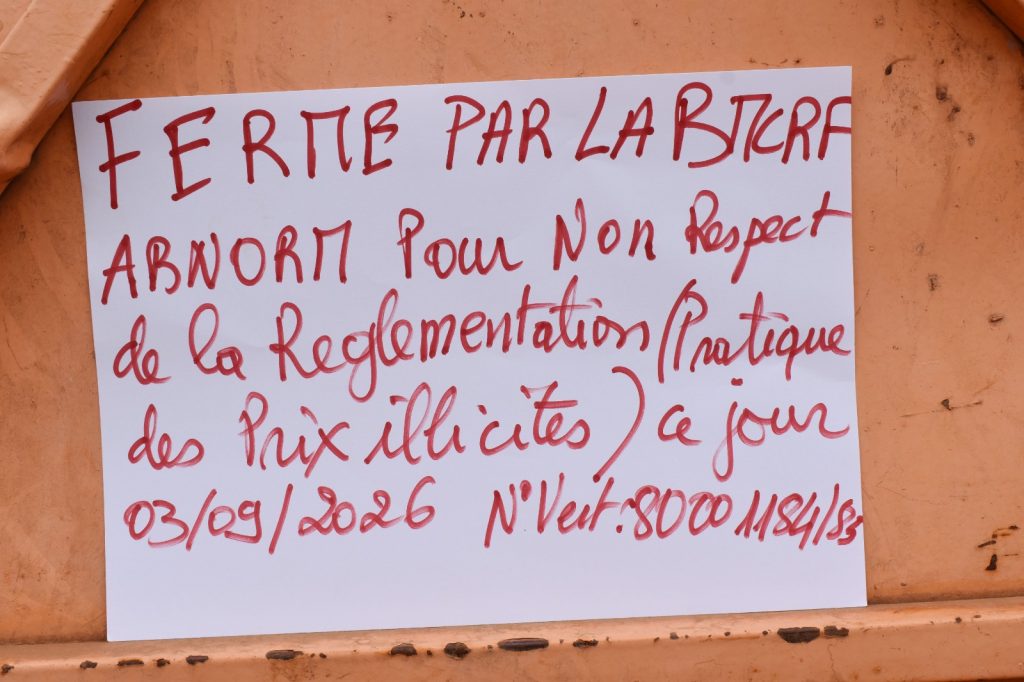 FERME PAR LA BMCRF
ABNORM Pour Non Respect
de la Reglementation (Pratique
des Prix illicites) ce jour
03/09/2026 N° Vert : 80001184/85